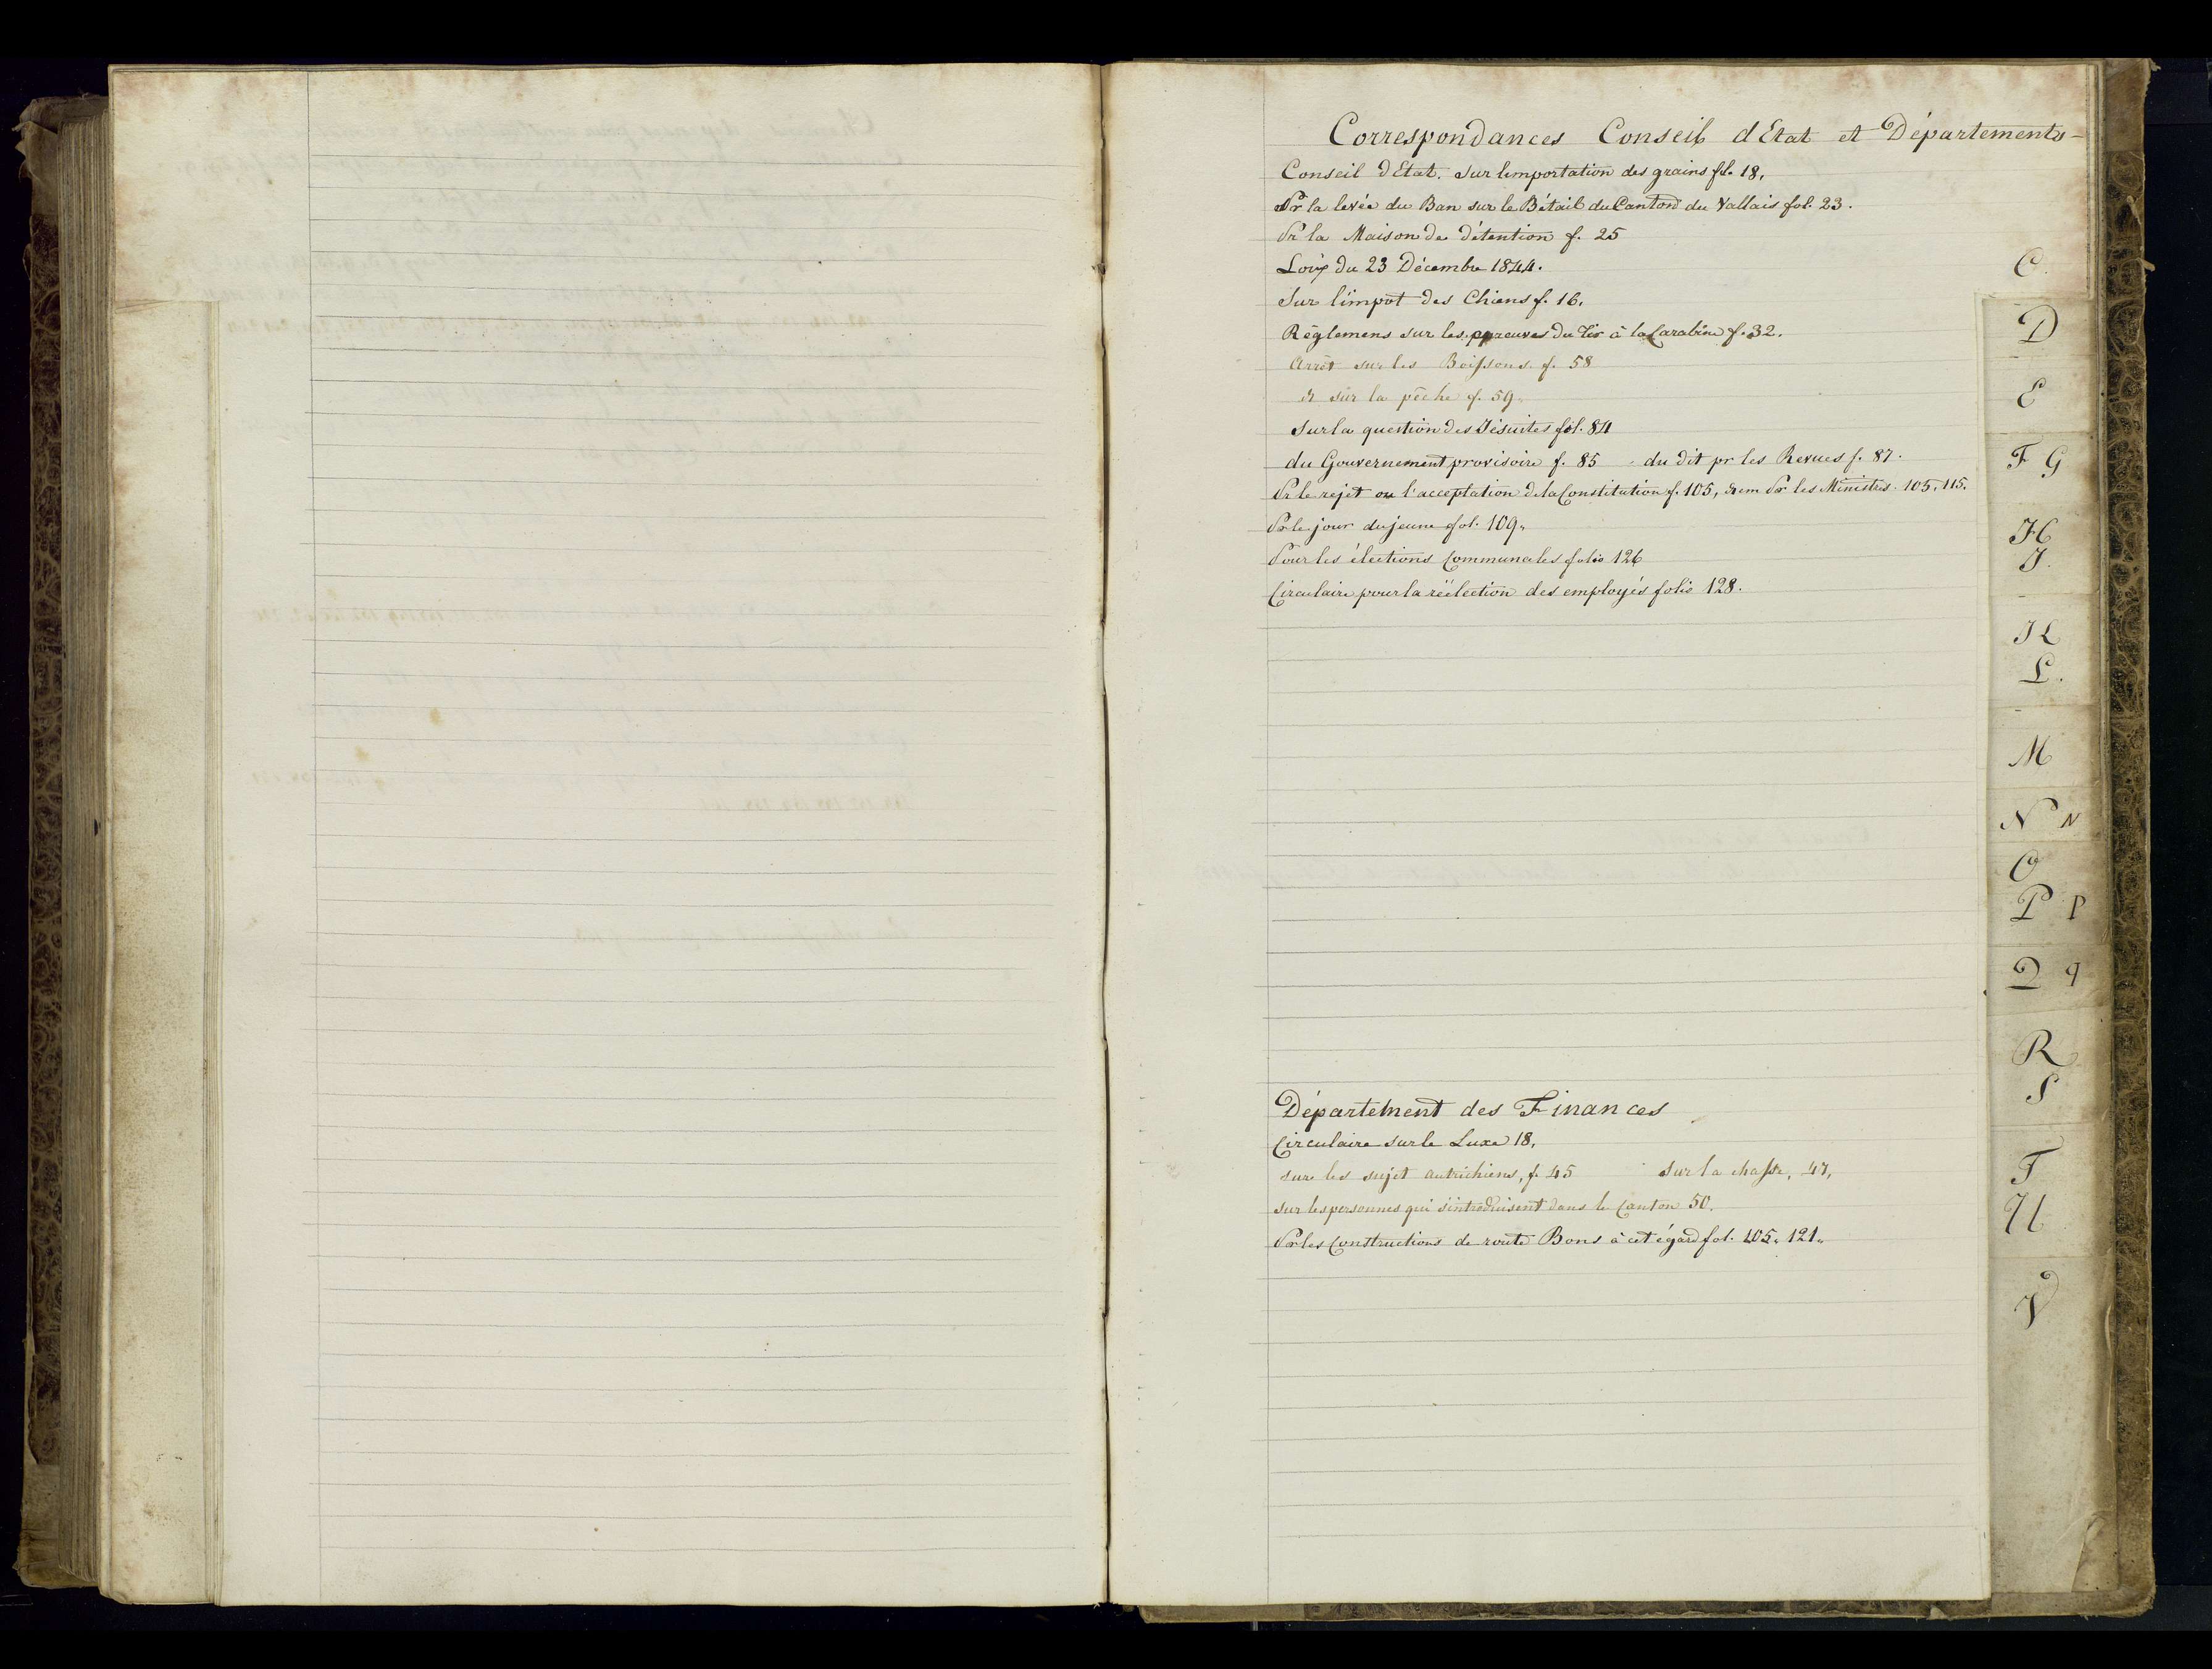 Correspondances Conseil d'Etat et Départements-
Conseil d'Etat. Sur l'importation des grains fol. 18,
Pr la levée du Ban sur le Bétail du Canton du Vallais fol. 23.
Pr la Maison de détention f. 25
Loix du 23 Décembre 1844.
Sur l'impot des Chiens f. 16.
Règlemens sur les épreuves du Tir à la Carabine f. 32.
Arrêt sur les Boissons f. 58
sur la pêche f. 59.
Sur la question des Jésuites fol. 84
du Gouvernement provisoire f. 85 - du dit pr les Revues f. 87.
Pr le rejet ou l'acceptation de la Constitution f. 105, Pr les Ministres 105, 115.
Pr le jour du jeune fol. 109.
Pour les élections Communales folio 126
Circulaire pour la réélection des employés folio 128.
Département des Finances
Circulaire sur le Luxe 18,
sur les sujet autrichiens, f. 45 Sur la chasse, 47,
sur les personnes qui s'introduisent dans le Canton 50.
Pr les Constructions de route Bons à cet égard fol. 105. 121.
C.
D
E
F G
H
J.
K
L.
M
N N
O
P P
Q q
R
S
T
U
V